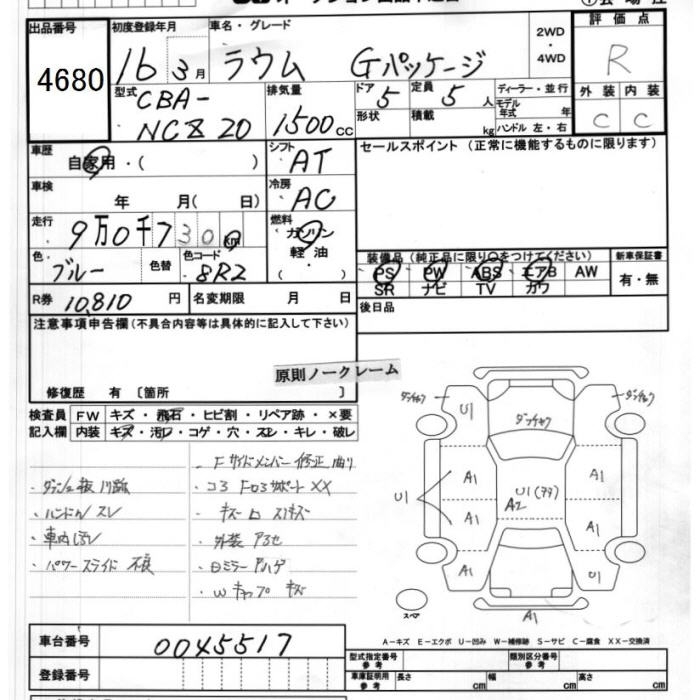 出品番号 初度登録年月 車名・グレード 2WD ・ 4WD 評価点
4680 16 3月 ラウム Gパッケージ R
型式 排気量 ドア 定員 ディーラー・並行 外装 内装
CBA- 5 5人 モデル年式 年
NCZ20 1500cc 形状 積載 kg ハンドル 左・右 C C
車歴 シフト セールスポイント (正常に機能するものに限ります)
自家用・( ) AT
車検 冷房
年 月( 日) AC
走行 燃料
9万0千7300km ガソリン
軽油
( )
色 色替 色コード 装備品 (純正品に限り○をつけてください) 新車保証書
ブルー 8R2 PS PW ABS エアB AW 有・無
SR ナビ TV カワ
R券 10,810円 名変期限 月 日 後日品
注意事項申告欄(不具合内容等は具体的に記入して下さい)
原則ノークレーム
修復歴 有 〔箇所 〕
検査員 FW キズ・飛石・ヒビ割・リペア跡・×要
記入欄 内装 キズ・汚レ・コゲ・穴・スレ・キレ・破レ
・Fサイドメンバー 修正 曲り
・コろ Fロろサポート XX
・ハンドル スレ
・外装 アセ
・車内汚レ
・パワースライド 不良
・Wキャップ キズ
ダンチャク U1 ダンチャク ダンチャク
A1 A1
U1 U1 A2
A1 A1
A1 U1
スペア A1
A-キズ E-エクボ U-凹み W-補修跡 S-サビ C-腐食 XX-交換済
車台番号 0045517
型式指定番号 参考 類別区分番号 参考
登録番号 車庫証明用 参考 長さ cm 幅 cm 高さ cm